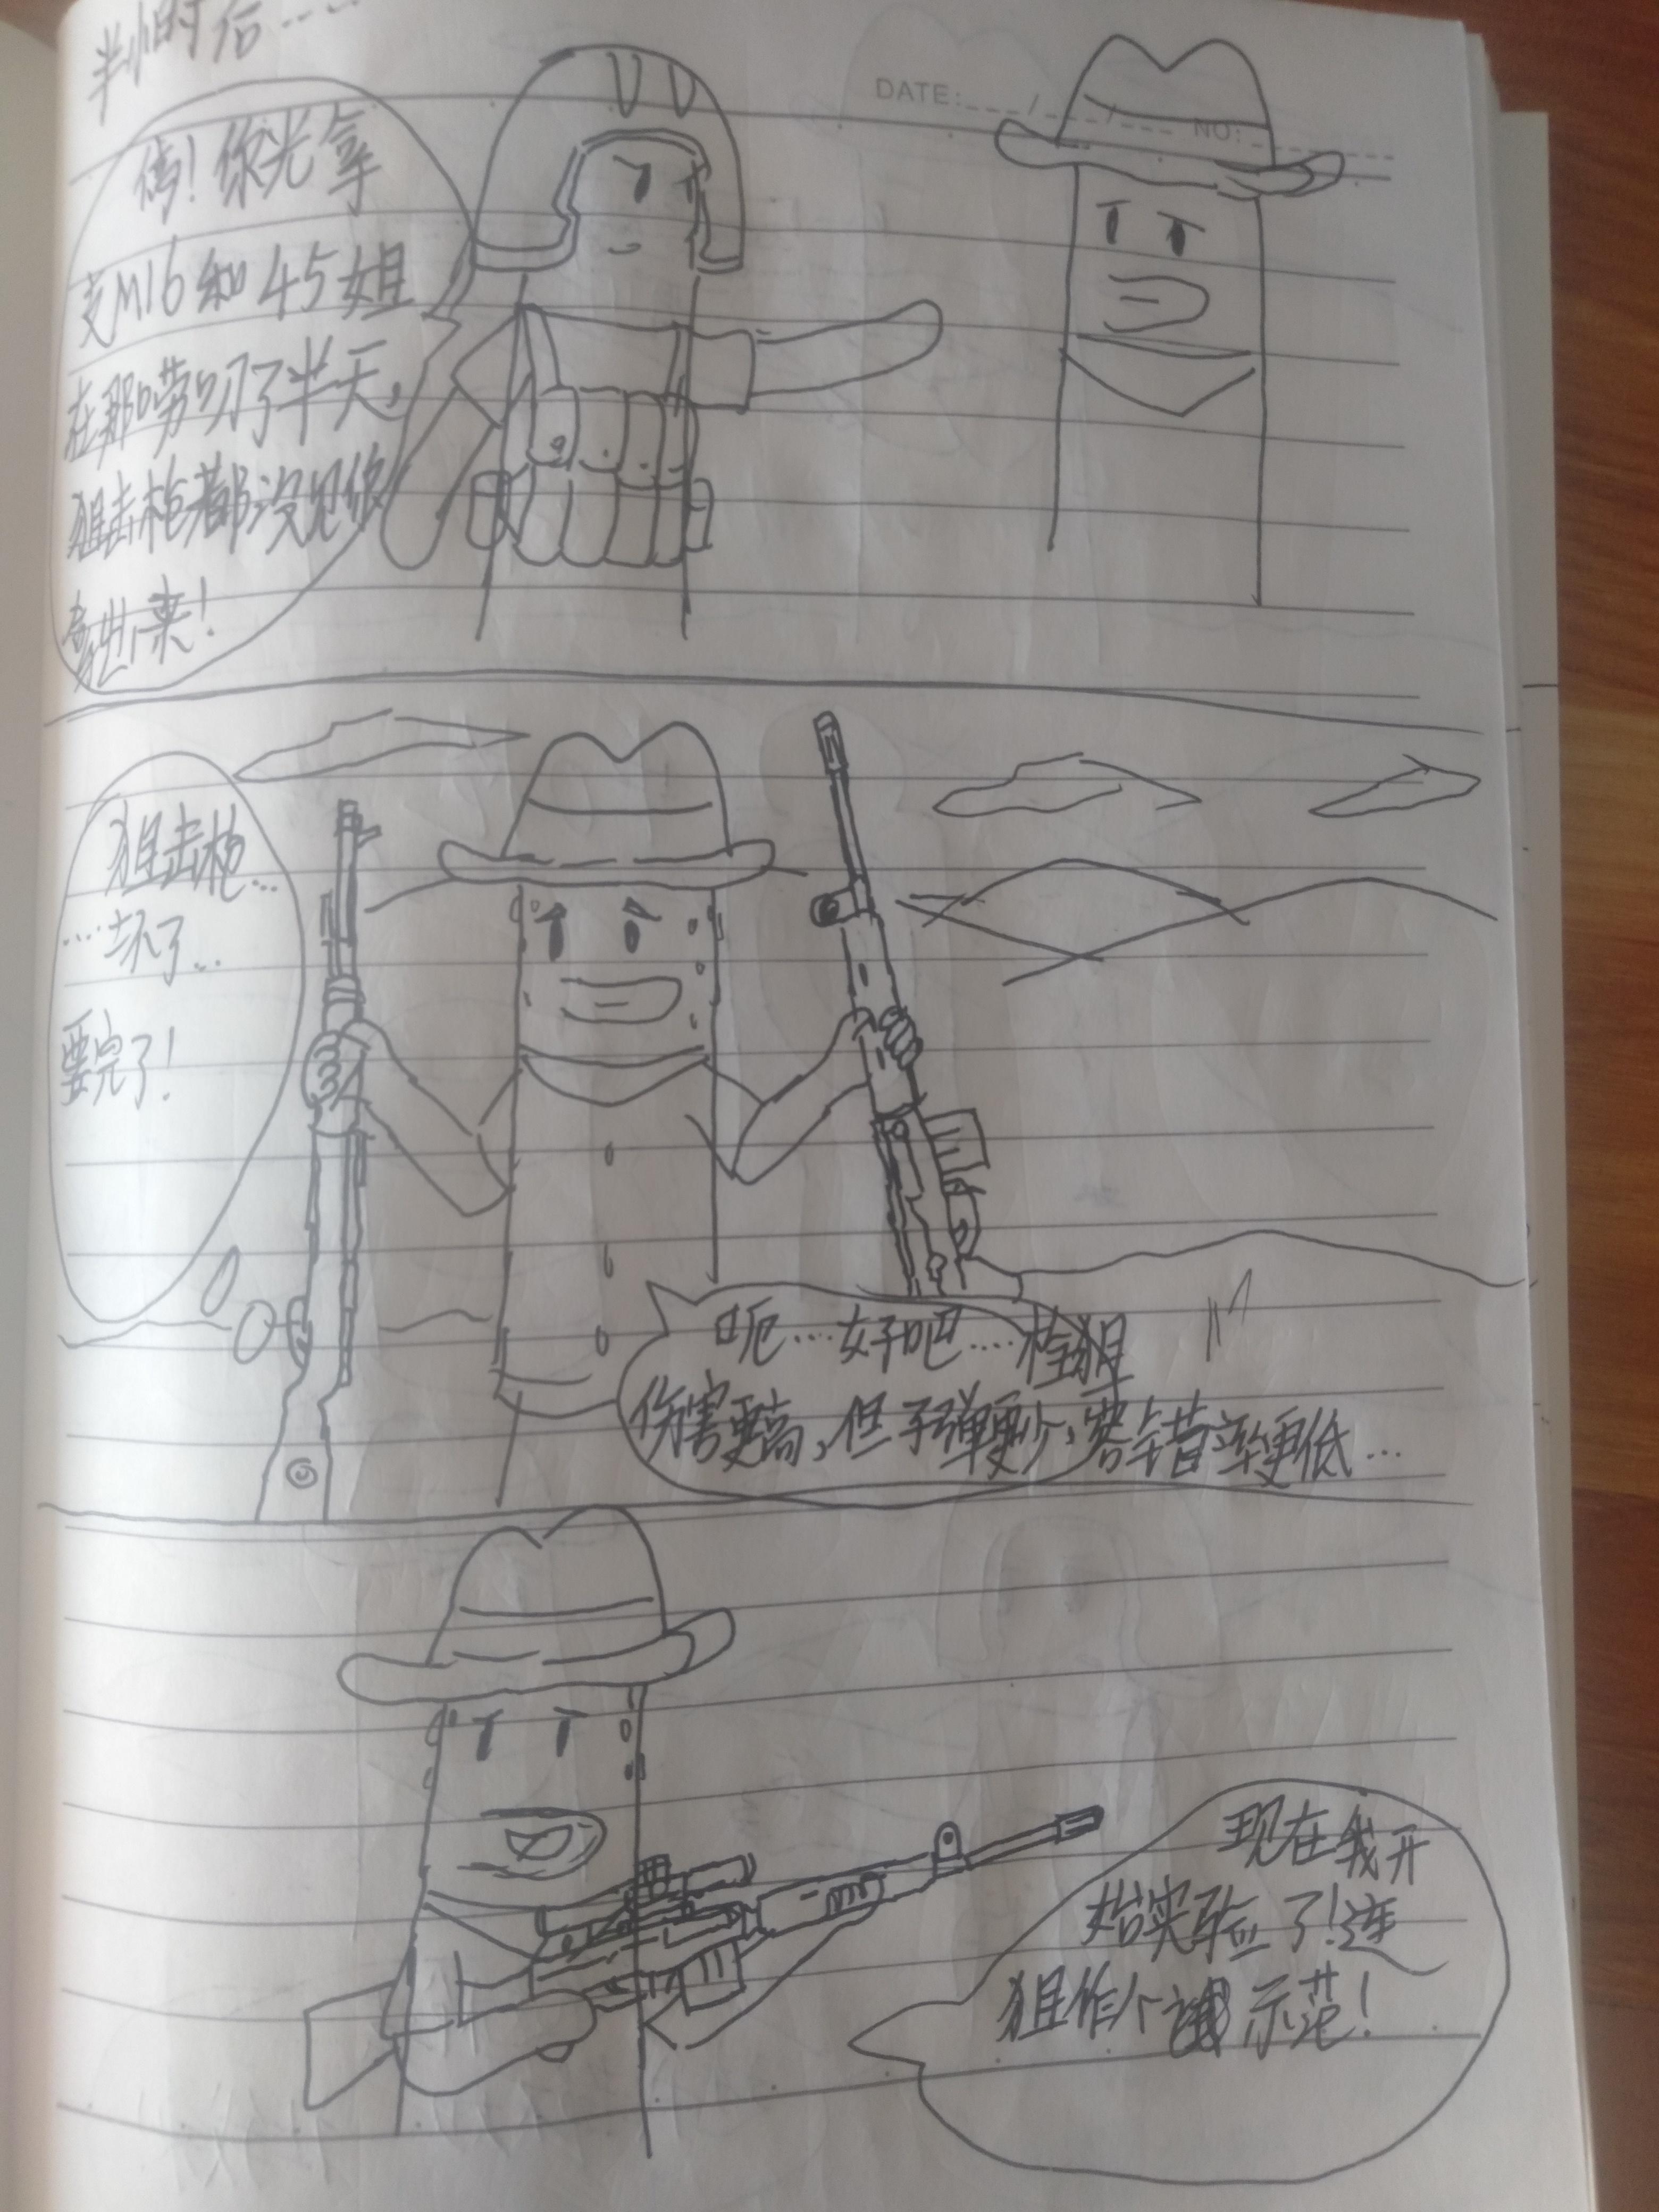 半小时后……
DATE: / / NO:
停！你光拿
支M16和45姐
在那唠叨了半天，
狙击枪都没见你
拿出来！
狙击枪…
…坏了…
要完了！
呃……好吧……栓狙
伤害更高，但子弹更少，容错率更低…
现在我开
始实验了！连
狙作个示范！